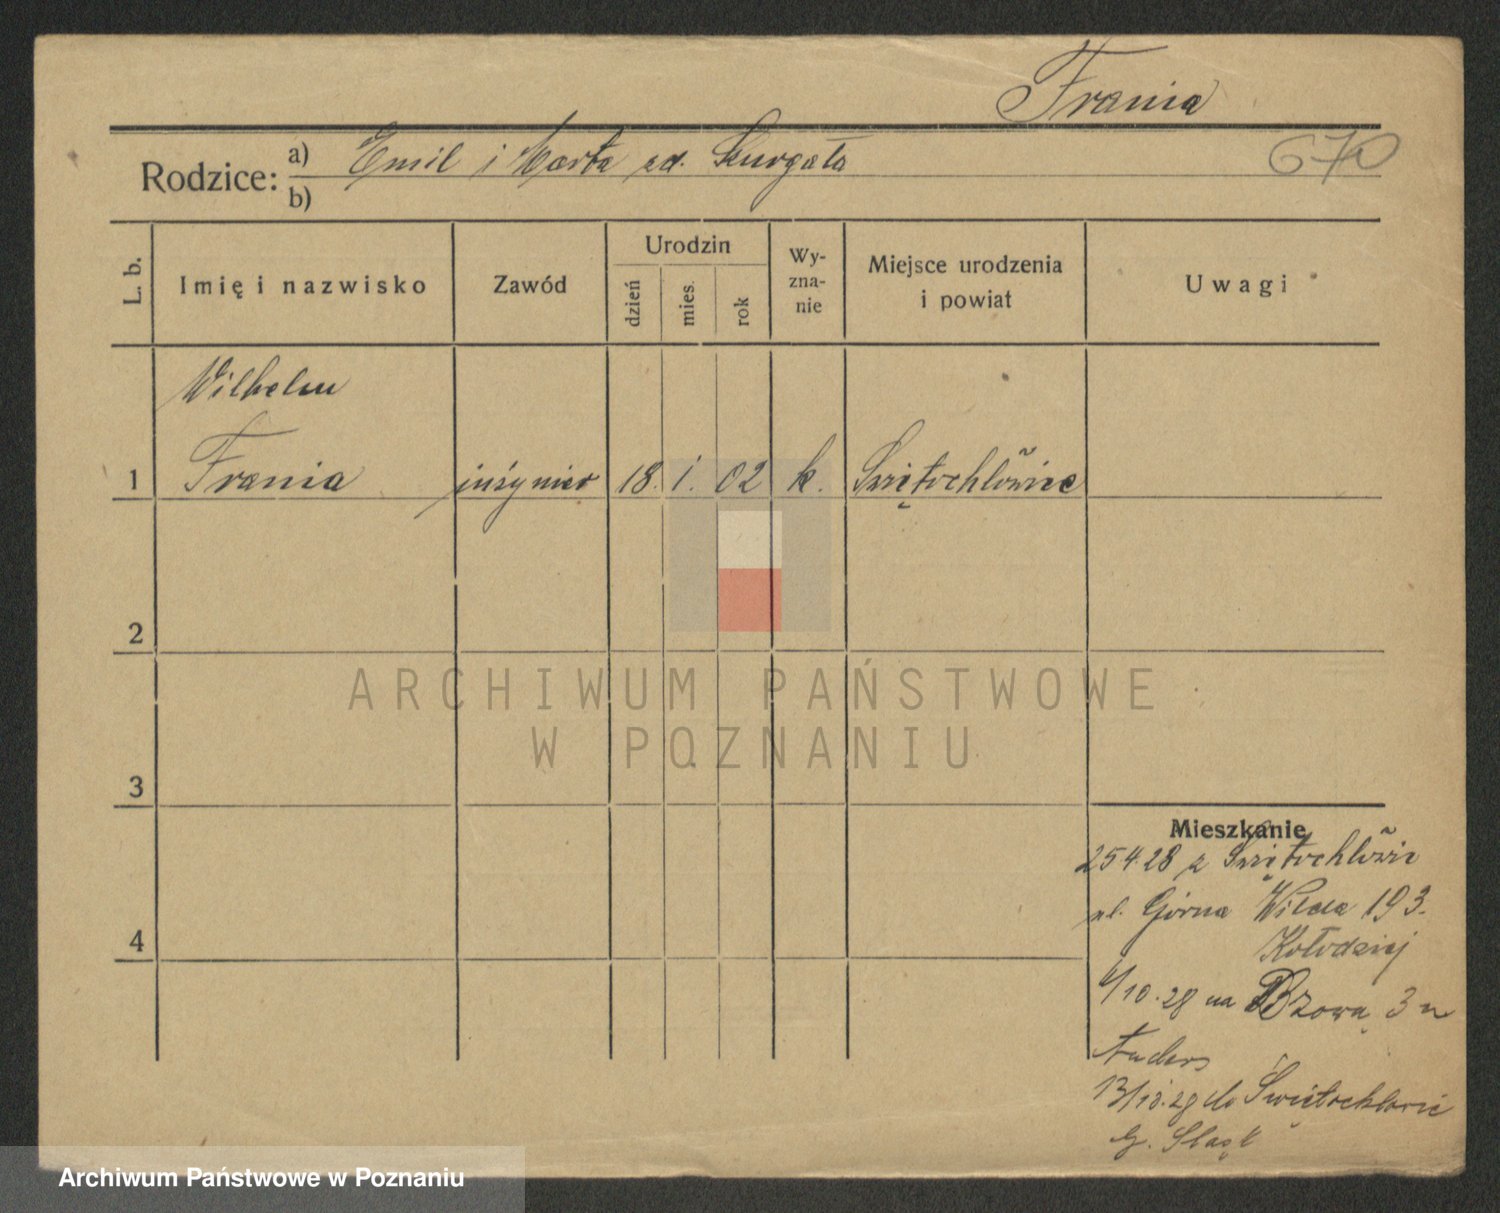 Frania
670
Rodzice: a) Emil i Marta zd. Szurgała
b)
L. b.
Imię i nazwisko
Zawód
Urodzin
dzień
mies.
rok
Wy-
zna-
nie
Miejsce urodzenia
i powiat
Uwagi
Wilhelm
1 Frania inżynier 18. i. 02 k. Świętochłowice
2
3
4
ARCHIWUM PAŃSTWOWE
W POZNANIU
Mieszkanie
25 4.28 z Świętochłowic
ul. Górna Wilda 193.
Kołodziej
1/10.28 na Bzową 3 u
Anders
13/10.28 do Świętochłowic
G. Śląsk
Archiwum Państwowe w Poznaniu